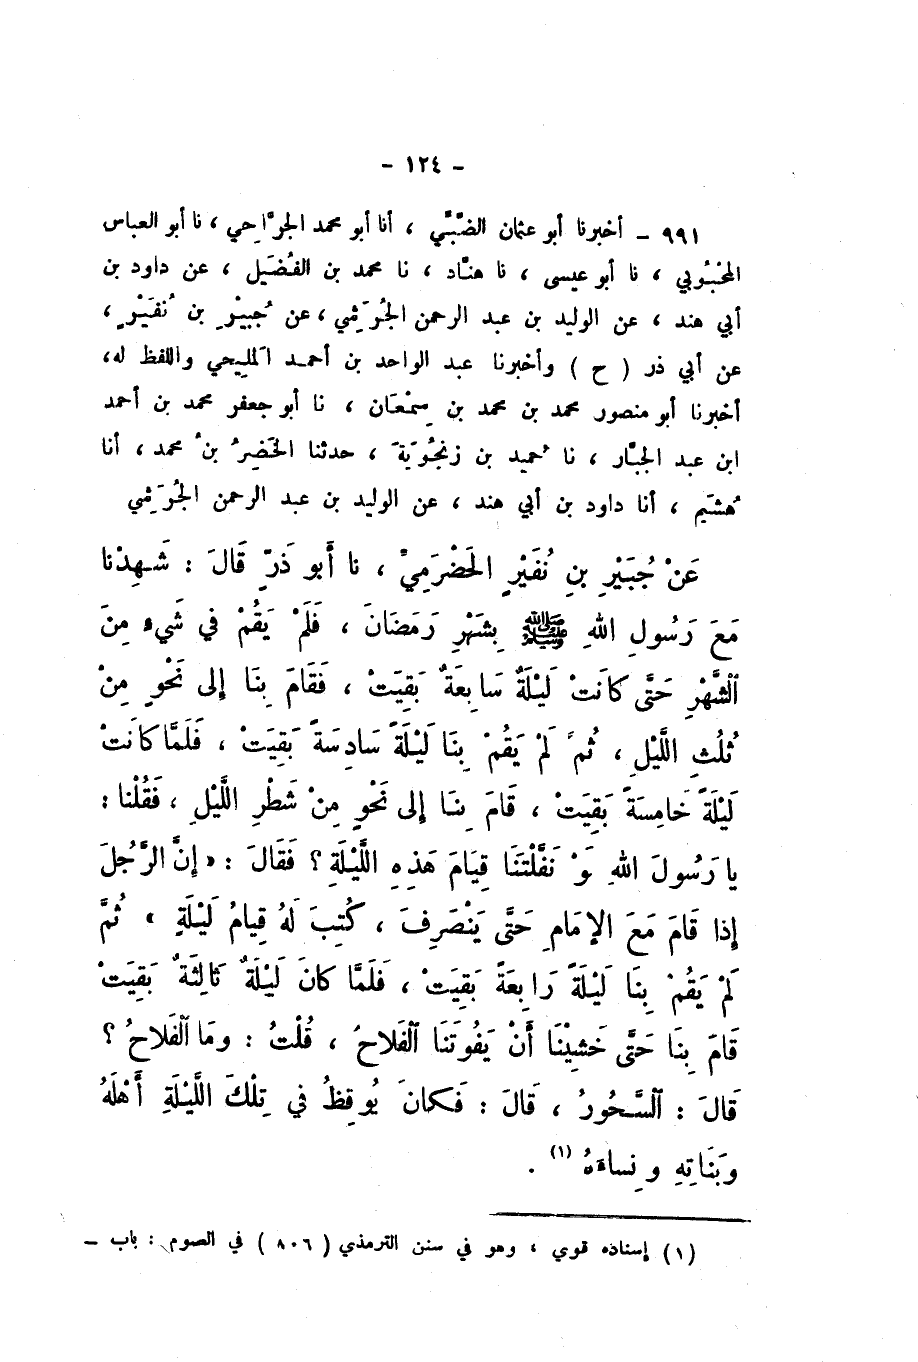 - ١٢٤ -
٩٩١ - أخبرنا أبو عثمان الضَّبِّيُّ ، أنا أبو محمد الجرَّاحِي ، نا أبو العباس
المحْبُوبي ، نا أبو عيسى ، نا هنَّاد ، نا محمد بن الفُضَيل ، عن داود بن
أبي هند ، عن الوليد بن عبد الرحمن الجُرَشي ، عن جُبيْرِ بن نُفَيْرٍ ،
عن أبي ذر ( ح ) وأخبرنا عبد الواحد بن أحمد المليحي واللفظ له ،
أخبرنا أبو منصور محمد بن محمد بن سِمْعَان ، نا أبو جعفر محمد بن أحمد
ابن عبد الجبَّار ، نا حُميد بن زنجُوَيةَ ، حدثنا الخَضِرُ بنُ محمد ، أنا
هُشَيم ، أنا داود بن أبي هند ، عن الوليد بن عبد الرحمن الجُرَشي
عَنْ جُبَيْرِ بنِ نُفَيْرٍ الحَضْرَمِيِّ ، نا أَبو ذَرٍّ قَالَ : شَهِدْنا
مَعَ رَسُولِ اللهِ ﷺ بِشَهْرِ رَمَضَانَ ، فَلَمْ يَقُمْ في شَيءٍ مِنَ
ٱلْشَّهْرِ حَتَّى كَانَتْ لَيْلَةٌ سَابِعَةٌ بَقِيَتْ ، فَقَامَ بِنَا إِلى نَحْوٍ مِنْ
ثُلُثِ اللَّيْلِ ، ثُمَّ لَمْ يَقُمْ بِنَا لَيْلَةً سَادِسَةً بَقِيَتْ ، فَلَمَّا كَانَتْ
لَيْلَةً خَامِسَةً بَقِيَتْ ، قَامَ بِنَا إِلى نَحْوٍ مِنْ شَطْرِ اللَّيْلِ ، فَقُلْنا :
يا رَسُولَ اللهِ لَوْ نَفَّلْتَنَا قِيَامَ هَذِهِ اللَّيْلَةِ ؟ فَقَالَ : « إِنَّ الرَّجُلَ
إِذا قَامَ مَعَ الإِمَامِ حَتَّى يَنْصَرِفَ ، كُتِبَ لَهُ قِيامُ لَيْلَةٍ » ثُمَّ
لَمْ يَقُمْ بِنَا لَيْلَةً رَابِعَةً بَقِيَتْ ، فَلَمَّا كانَ لَيْلَةٌ ثَالِثَةٌ بَقِيَتْ
قَامَ بِنَا حَتَّى خَشِيْنَا أَنْ يَفُوتَنَا ٱلْفَلاحُ ، قُلْتُ : ومَا ٱلْفَلاحُ ؟
قَالَ : ٱلْسَّحُورُ ، قَالَ : فَكانَ يُوقِظُ في تِلْكَ اللَّيْلَةِ أَهْلَهُ
وبَنَاتِهِ ونِساءَهُ (١) .
(١) إسناده قوي ، وهو في سنن الترمذي ( ٨٠٦ ) في الصوم : باب -